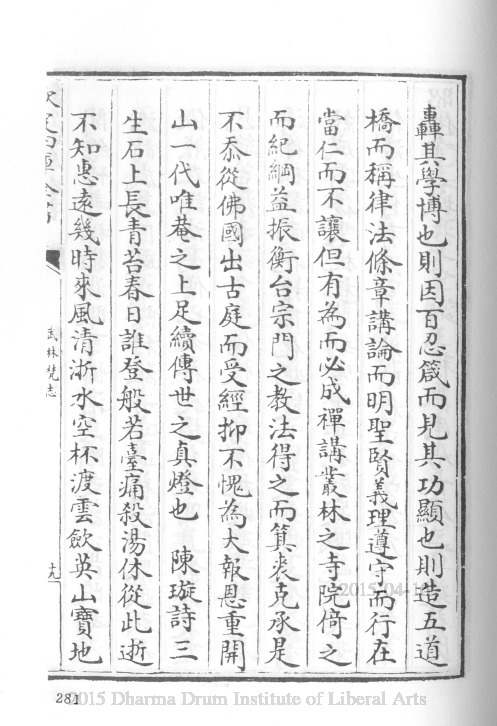 轟其學博也則因百忍箴而見其功顯也則造五道
橋而稱律法條章講論而明聖賢義理遵守而行在
當仁而不讓但有為而必成禪講叢林之寺院倚之
而紀綱益振衡台宗門之教法得之而箕裘克承是
不忝從佛國出古庭而受經抑不愧為大報恩重開
山一代唯菴之上足續傳世之真燈也 陳璇詩三
生石上長青苔春日誰登般若臺痛殺湯休從此逝
不知惠遠幾時來風清浙水空杯渡雲歛英山寶地
欽定四庫全書
武林梵志
十九
2015-04-1
281
2015 Dharma Drum Institute of Liberal Arts